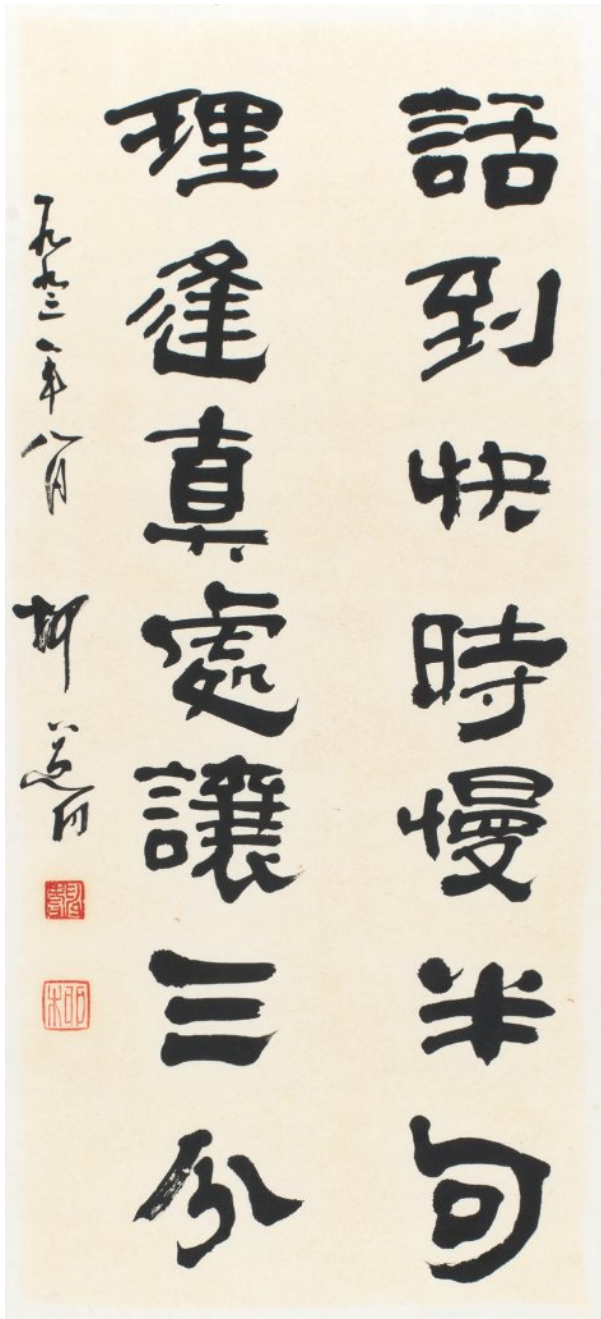 話到快時慢半句
理逢真處讓三分
一九九二年八月
柳